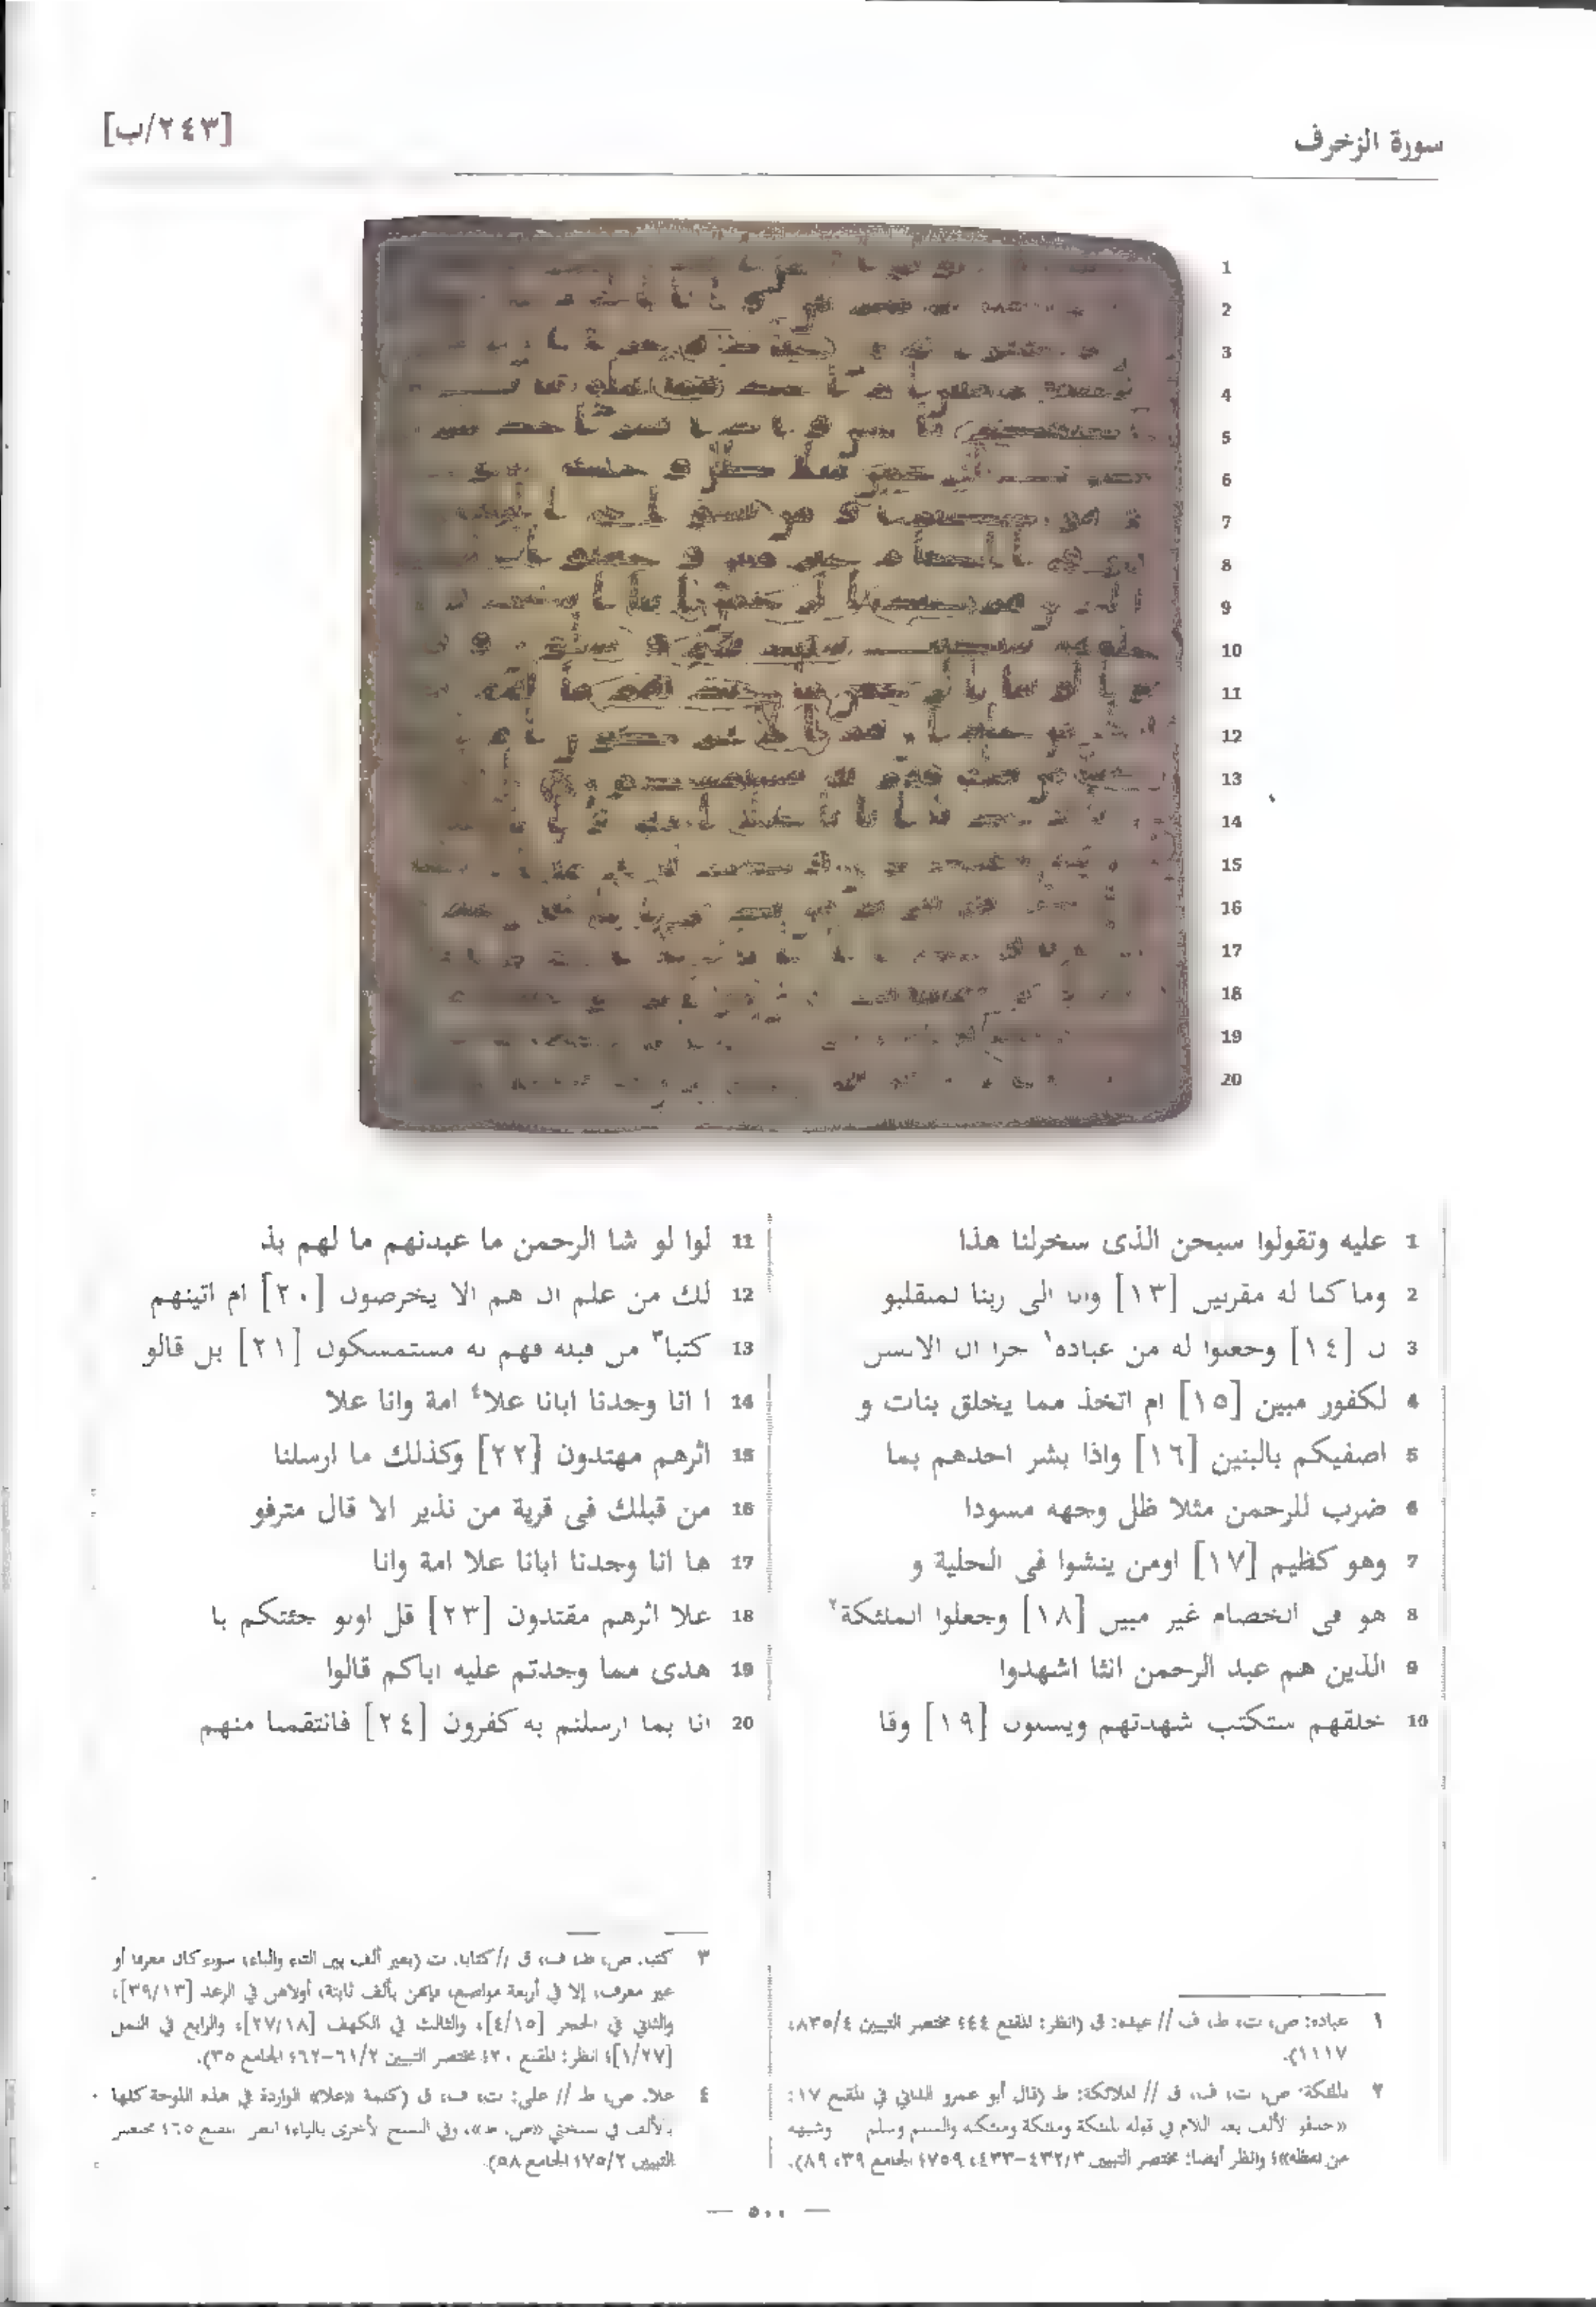 سورة الزخرف
[٢٤٣/ب]
1
2
3
4
5
6
7
8
9
10
11
12
13
14
15
16
17
18
19
20
1 عليه وتقولوا سبحن الذى سخرلنا هذا
2 وما كنا له مقرنين [١٣] وانا الى ربنا لمنقلبو
3 ن [١٤] وجعلوا له من عباده١ جزا ان الانسن
4 لكفور مبين [١٥] ام اتخذ مما يخلق بنات و
5 اصفيكم بالبنين [١٦] واذا بشر احدهم بما
6 ضرب للرحمن مثلا ظل وجهه مسودا
7 وهو كظيم [١٧] اومن ينشوا فى الحلية و
8 هو فى الخصام غير مبين [١٨] وجعلوا الملئكة٢
9 الذين هم عبد الرحمن انثا اشهدوا
10 خلقهم ستكتب شهدتهم ويسلون [١٩] وقا
11 لوا لو شا الرحمن ما عبدنهم ما لهم بذ
12 لك من علم ان هم الا يخرصون [٢٠] ام اتينهم
13 كتبا٣ من قبله فهم به مستمسكون [٢١] بل قالو
14 ا انا وجدنا ابانا علا٤ امة وانا علا
15 اثرهم مهتدون [٢٢] وكذلك ما ارسلنا
16 من قبلك فى قرية من نذير الا قال مترفو
17 ها انا وجدنا ابانا علا امة وانا
18 علا اثرهم مقتدون [٢٣] قل اولو جئتكم با
19 هدى مما وجدتم عليه اباكم قالوا
20 انا بما ارسلتم به كفرون [٢٤] فانتقمنا منهم
١ عباده: ص، ت، ط، ف // عبده: ق (انظر: المقنع ٤٤؛ مختصر التبيين ٨٣٥/٤،
١١١٧).
٢ الملئكة: ص، ت، ف، ق // الملائكة: ط (قال أبو عمرو الداني في المقنع ١٧:
«حذفو الألف بعد اللام في قوله الملئكة وملئكة وملئكته والسلم وسلم وشبهه
من لفظه»؛ وانظر أيضا: مختصر التبيين ٤٣٢/٣-٤٣٣، ٧٥٩؛ الجامع ٣٩، ٨٩).
٣ كتبا: ص، ط، ف، ق // كتابا: ت (بغير ألف بين التاء والباء، سواء كان معرفا أو
غير معرف، إلا في أربعة مواضع، فإنهن بألف ثابتة، أولاهن في الرعد [٣٩/١٣]،
والثاني في الحجر [٤/١٥]، والثالث في الكهف [٢٧/١٨]، والرابع في النمل
[١/٢٧]؛ انظر: المقنع ٢٠؛ مختصر التبيين ٦١/٢-٦٢؛ الجامع ٣٥).
٤ علا: ص، ط // على: ت، ف، ق (كلمة «علا» الواردة في هذه اللوحة كلها
بالألف في نسختي «ص، ط»، وفي النسخ الأخرى بالياء؛ انظر: المقنع ٦٥؛ مختصر
التبيين ٧٥/٢؛ الجامع ٥٨).
— ٥٠٠ —